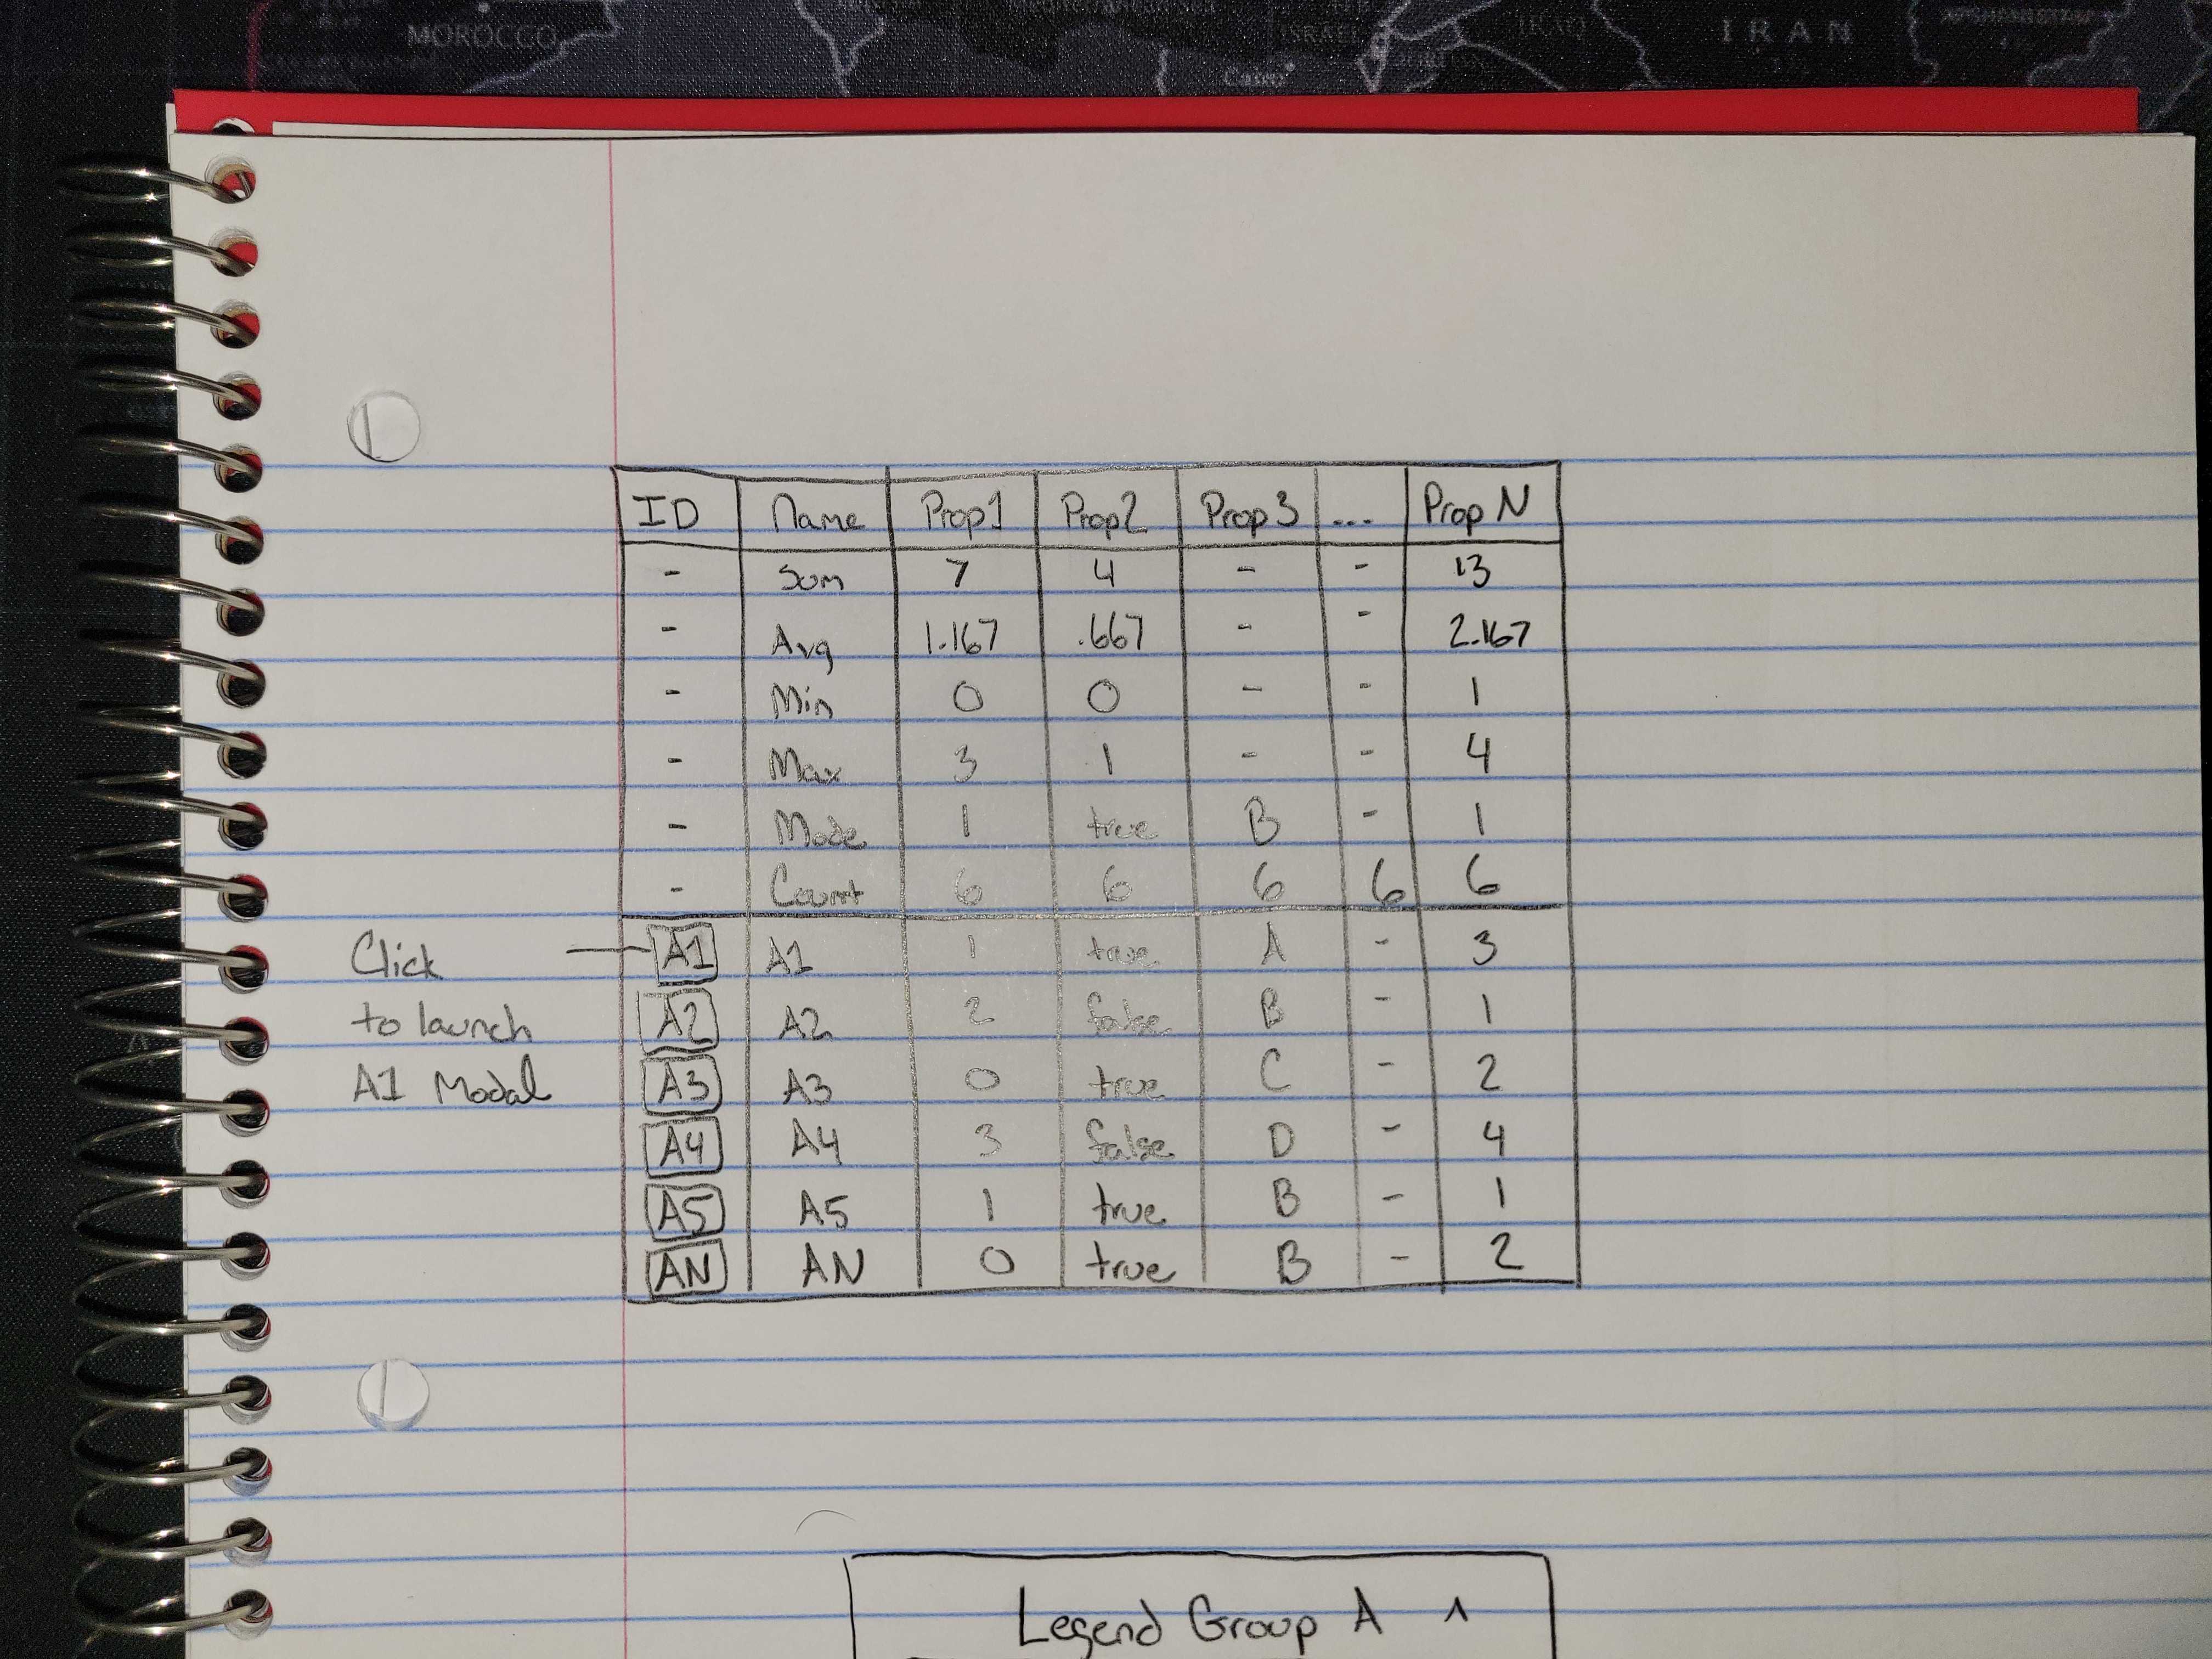 MOROCCO
ISRAEL
Cairo
IRAQ
IRAN
ID Name Prop1 Prop2 Prop3 ... Prop N
- Sum 7 4 - - 13
- Avg 1.167 .667 - - 2.167
- Min 0 0 - - 1
- Max 3 1 - - 4
- Mode 1 true B - 1
- Count 6 6 6 6 6
Click A1 A1 1 true A - 3
to launch A2 A2 2 false B - 1
A1 Modal A3 A3 0 true C - 2
A4 A4 3 false D - 4
A5 A5 1 true B - 1
AN AN 0 true B - 2
Legend Group A ^